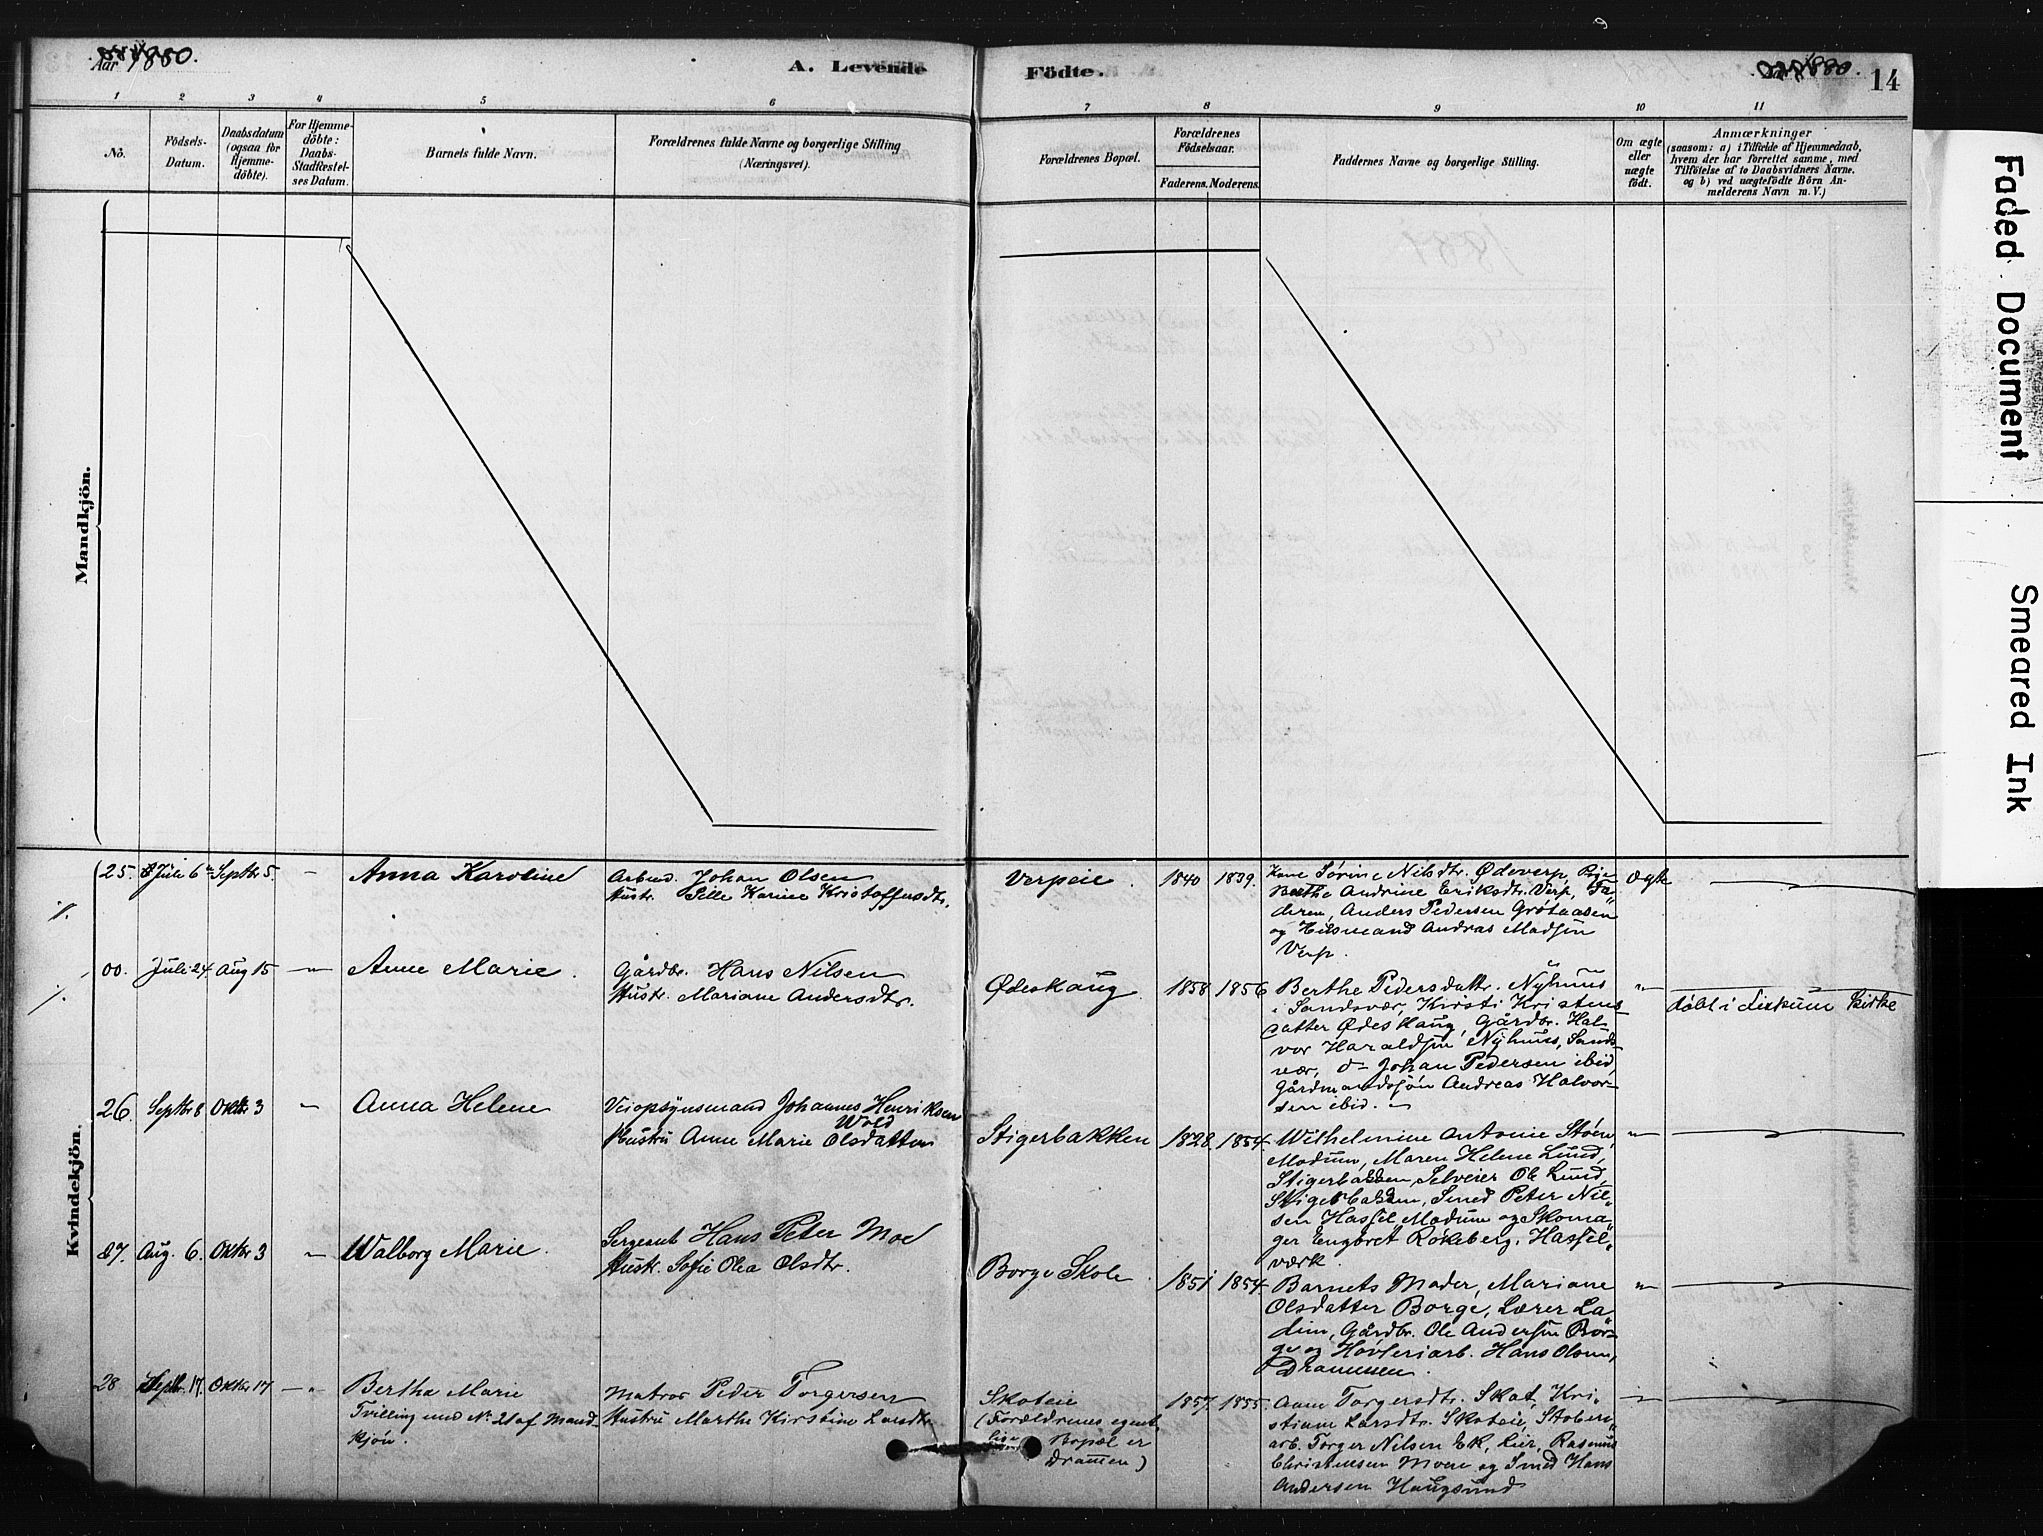 Aar 1880.
A. Levende
Födte.
1880.
14
1 2 3 4 5 6 7 8 9 10 11
No.
Födsels-
Datum.
Daabsdatum
(ogsaa for
Hjemme-
döbte).
For Hjemme-
döbte:
Daabs-
Stadfæstel-
ses Datum.
Barnets fulde Navn.
Forældrenes fulde Navne og borgerlige Stilling
(Næringsvei).
Forældrenes Bopæl.
Forældrenes
Födselsaar.
Faderens. Moderens.
Faddernes Navne og borgerlige Stilling.
Om ægte
eller
uægte
födt.
Anmærkninger
(saasom: a) i Tilfælde af Hjemmedaab,
hvem der har forrettet samme, med
Tilföielse af to Daabsvidners Navne.
og b) ved uægtefödte Börn An-
melderens Navn m. V.)
Mandkjön.
Kvindekjön.
25. Juli 6 Septbr 5. Anna Karoline
Arbmd. Johan Olsen
Hustr. Pille Karine Kristoffersdtr.
Verpeie 1840 1839.
Kone Sørine Nilsdtr. Ødeverp, Pige
Berthe Andrine Eriksdtr. Verp, Fa-
deren, Anders Pedersen Grøtaasen
og Husmand Andras Madsen
Verp.
Ægte
00. Juli 24. Aug 15 Anne Marie.
Gårdbr. Hans Nilsen
Hustr. Mariane Andersdtr.
Ødeskaug 1858 1856
Berthe Pedersdattr. Nyhuus
i Sandsvær, Kirsti Kristens
datter Ødeskaug, Gårdbr. Hal-
vor Haraldsen Nyhuus, Sands-
vær, Johan Pedersen ibid,
Gårdmandssøn Andreas Halvor-
sen ibid.
døbt i Kirke
26. Septbr 8 Oktbr 3 Anna Helene
Veiopsynsmand Johannes Henriksen
Wold
Hustru Anne Marie Olsdatter
Stigerbakken 1828. 1854.
Wilhelmine Antonie Støen,
Modum, Maren Helene Lund,
Stigerbakken, Selveier Ole Lund,
Stigerbakken, Smed Peter Nil-
sen Hassel Modum og Skoma-
ger Engbret Røkeberg, Hassel-
værk.
27. Aug. 6. Oktbr 3 Walborg Marie.
Sergeant Hans Peter Moe
Hustr. Sofie Olea Olsdtr.
Borge Skole 1851 1854
Barnets Moder, Mariane
Olsdatter Borge, Lærer La-
dim, Gårdbr. Ole Andersen Bor-
ge og Høvleriarb. Hans Olsen,
Drammen.
28 Septbr. 17. Oktbr 17 Bertha Marie
Tvilling med No. 21 af Mand-
kjön.
Matros Peder Torgersen
Hustru Marthe Kirstine Larsdtr
Skoteie
(Forældrenes egent-
lige Bopæl er
Dramen)
1857. 1855.
Torgersdtr. Skot, Kri-
stiane Larsdtr. Skoteie,
arb. Torger Nilsen Ek, Lier, Rasmus
Christensen Moen og Smed Hans
Andersen Haugsund
Faded Document
Smeared Ink